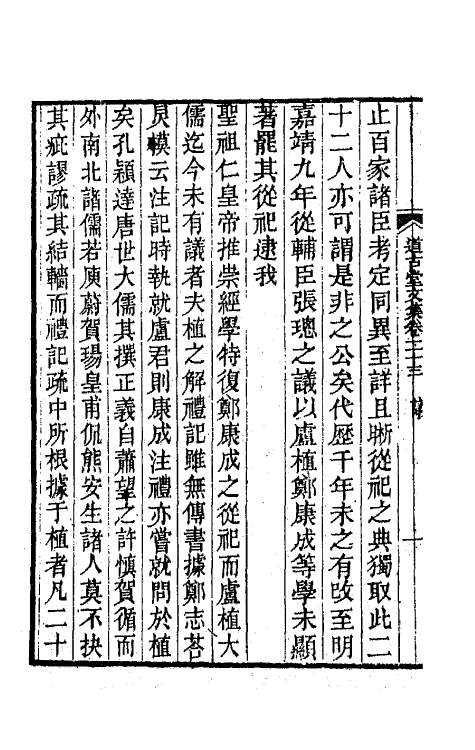 道古堂文集卷二十三
止百家諸臣考定同異至詳且晣從祀之典獨取此二
十二人亦可謂是非之公矣代歷千年未之有攺至明
嘉靖九年從輔臣張璁之議以盧植鄭康成等學未顯
著罷其從祀逮我
聖祖仁皇帝推崇經學特復鄭康成之從祀而盧植大
儒迄今未有議者夫植之解禮記雖無傳書據鄭志荅
炅模云注記時執就盧君則康成注禮亦嘗就問於植
矣孔穎達唐世大儒其撰正義自蕭望之許慎賀循而
外南北諸儒若庾蔚賀瑒皇甫侃熊安生諸人莫不抉
其疵謬疏其結轖而禮記疏中所根據于植者凡二十